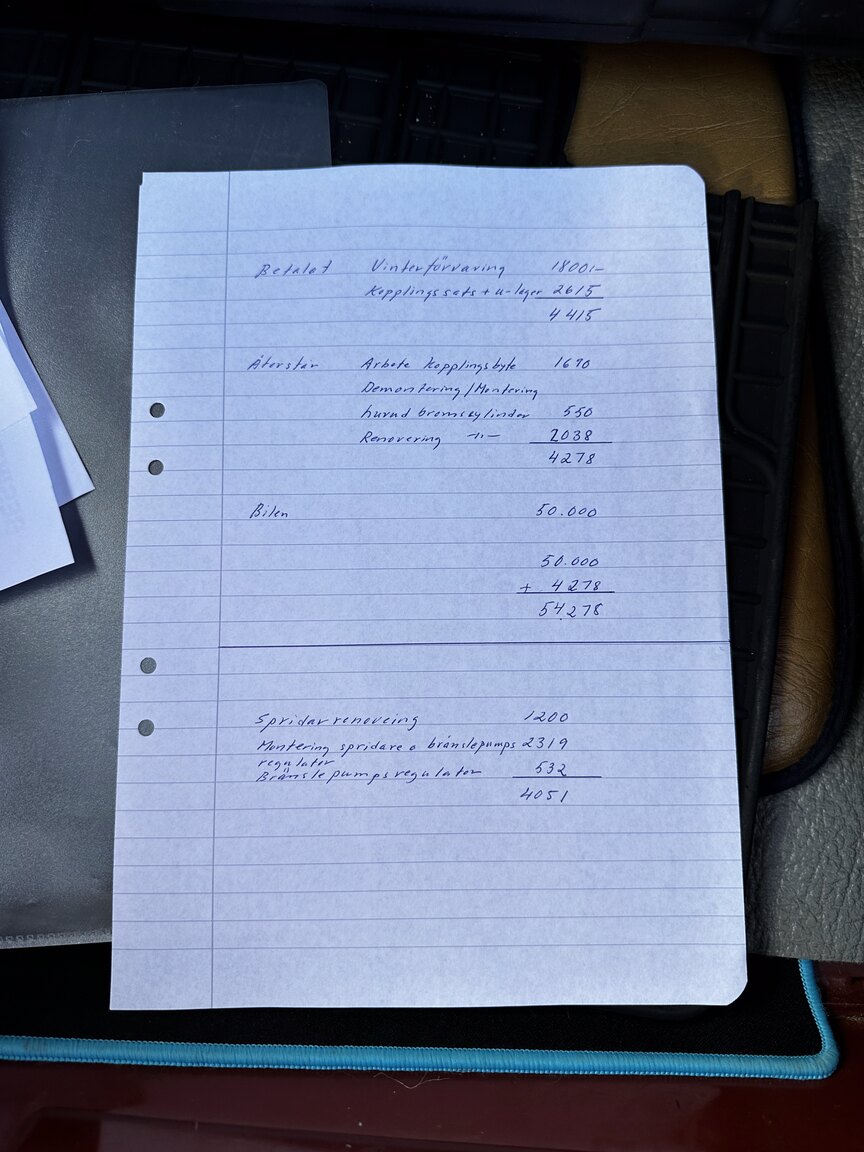 Betalat Vinterförvaring 1800:-
Kopplingssats + u-lager 2615
4415
Återstår Arbete kopplingsbyte 1690
Demontering/Montering
huvud bromscylinder 550
Renovering -"- 2038
4278
Bilen 50.000
50.000
+ 4278
54.278
Spridarrenoveing 1200
Montering spridare o bränslepumps 2319
regulator
Bränslepumpsregulator 532
4051